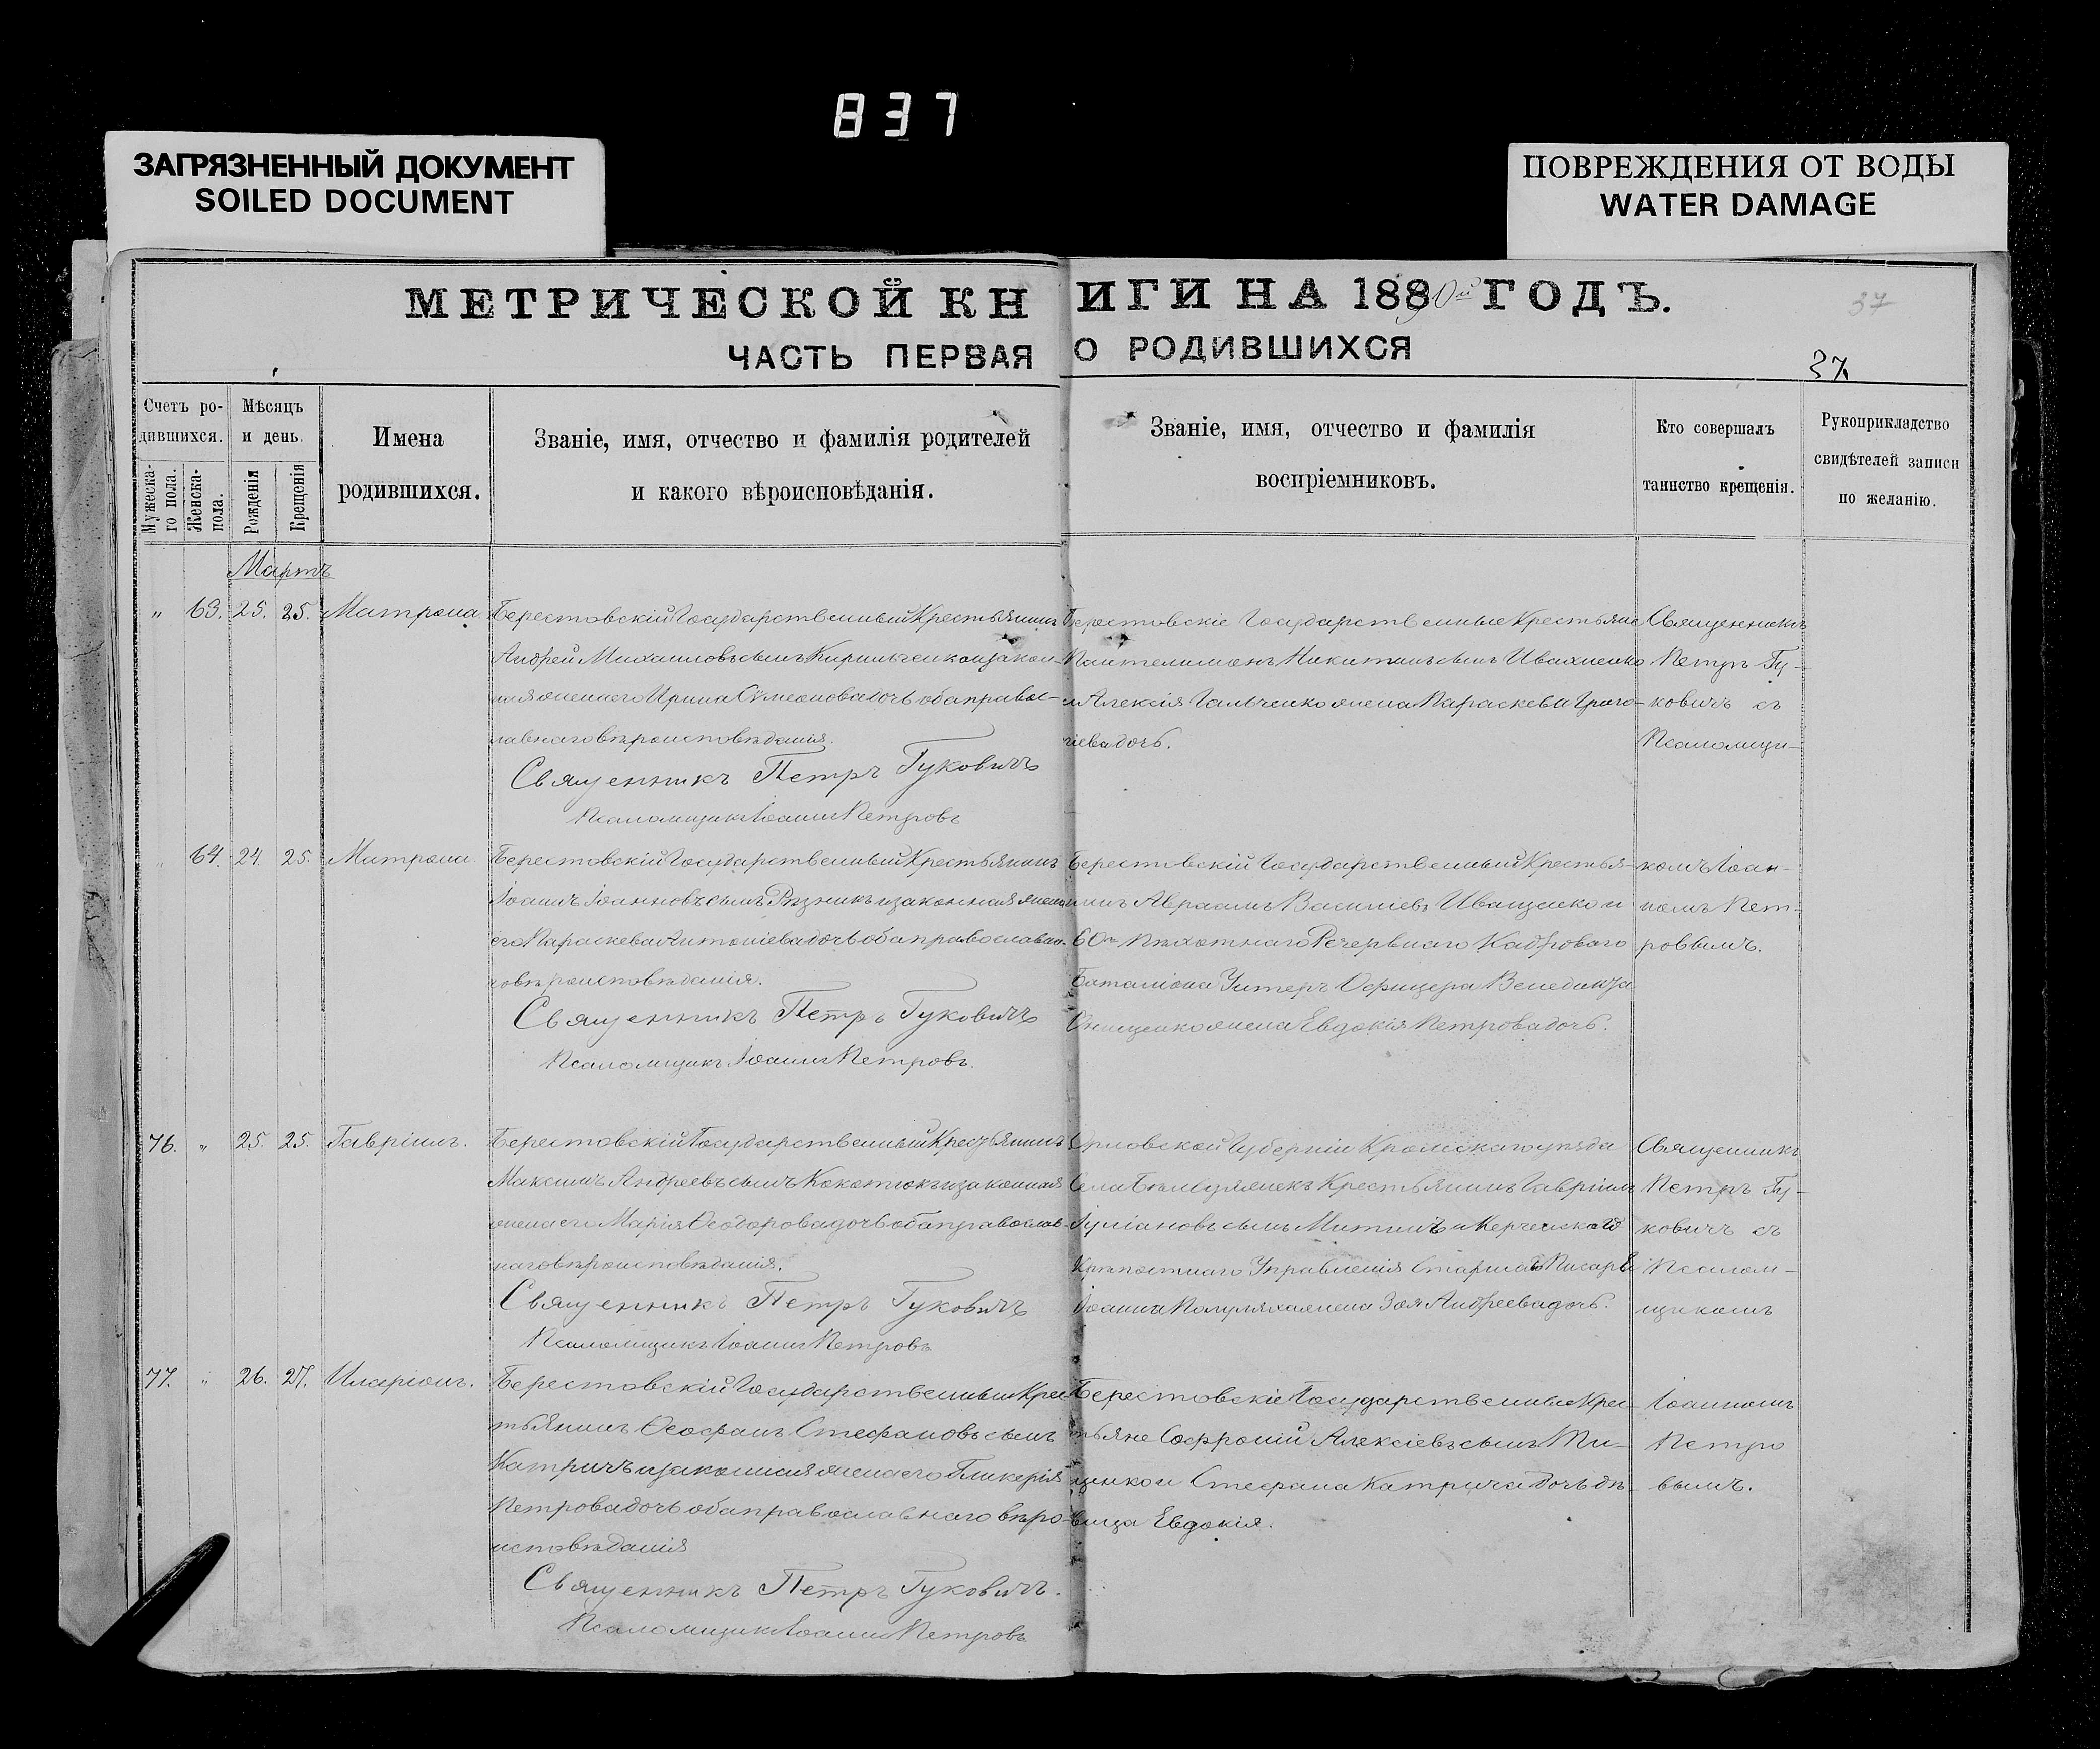 837
ЗАГРЯЗНЕННЫЙ ДОКУМЕНТ
SOILED DOCUMENT
ПОВРЕЖДЕНИЯ ОТ ВОДЫ
WATER DAMAGE
МЕТРИЧЕСКОЙ КНИГИ НА 1890й ГОДЪ.
37
ЧАСТЬ ПЕРВАЯ О РОДИВШИХСЯ
37
Счетъ ро-
дившихся.
Мужеска-
го пола.
Женска-
пола.
Мѣсяцъ
и день.
Рожденія
Крещенія
Имена
родившихся.
Званіе, имя, отчество и фамилія родителей
и какого вѣроисповѣданія.
Званіе, имя, отчество и фамилія
воспріемниковъ.
Кто совершалъ
таинство крещенія.
Рукоприкладство
свидѣтелей записи
по желанію.
Мартъ
" 63. 25. 25. Матрона
Берестовскій Государственный Крестьянинъ
Андрей Михаиловъ сынъ Кирильченко и закон-
ная жена его Ирина Сѵмеонова дочь оба правос-
лавнаго вѣроисповѣданія.
Священникъ Петръ Гуковичъ
Псаломщикъ Іоаннъ Петровъ
Берестовскіе Государственные Крестьяне
Пантелимонъ Никитинъ сынъ Ивахненко
и Алексія Гальченко жена Параскева Григо-
ріева дочь.
Священникъ
Петръ Гу-
ковичъ съ
Псаломщи-
" 64. 24. 25. Матрона.
Берестовскій Государственный Крестьянинъ
Іоаннъ Іоанновъ сынъ Рѣзникъ и законная жена
его Параскева Антоніева дочь оба православна-
го вѣроисповѣданія.
Священникъ Петръ Гуковичъ
Псаломщикъ Іоаннъ Петровъ.
Берестовскій Государственный Крестья-
нинъ Авраамъ Василіевъ Иващенко и
60го Пѣхотнаго Резервнаго Кадроваго
Баталіона Унтеръ Офицера Венедикта
Онищенко жена Евдокія Петрова дочь.
комъ Іоан-
номъ Пет-
ровымъ.
76. " 25. 25. Гавріилъ.
Берестовскій Государственный Крестьянинъ
Максимъ Андреевъ сынъ Кокотюкъ и законная
жена его Марія Ѳеодорова дочь оба православ-
наго вѣроисповѣданія.
Священникъ Петръ Гуковичъ
Псаломщикъ Іоаннъ Петровъ
Орловской Губерніи Кромскаго уѣзда
Села Крестьянинъ Гавріилъ
Іуліановъ сынъ Митинъ и Керченскаго
Крѣпостнаго Управленія Старшаго Писаря
Іоанна жена Зоя Андреева дочь.
Священникъ
Петръ Гу-
ковичъ съ
Псалом-
щикомъ
77. " 26. 27. Иларіонъ.
Берестовскій Государственный Крес-
тьянинъ Ѳеофанъ Стефановъ сынъ
Катричъ и законная жена его Гликерія
Петрова дочь оба православнаго вѣро-
исповѣданія
Священникъ Петръ Гуковичъ.
Псаломщикъ Іоаннъ Петровъ
Берестовскіе Государственные Крес-
тьяне Софроній Алексіевъ сынъ Ти-
щенко и Стефана Катрича дочь дѣ-
вица Евдокія.
Іоанномъ
Петро
вымъ.